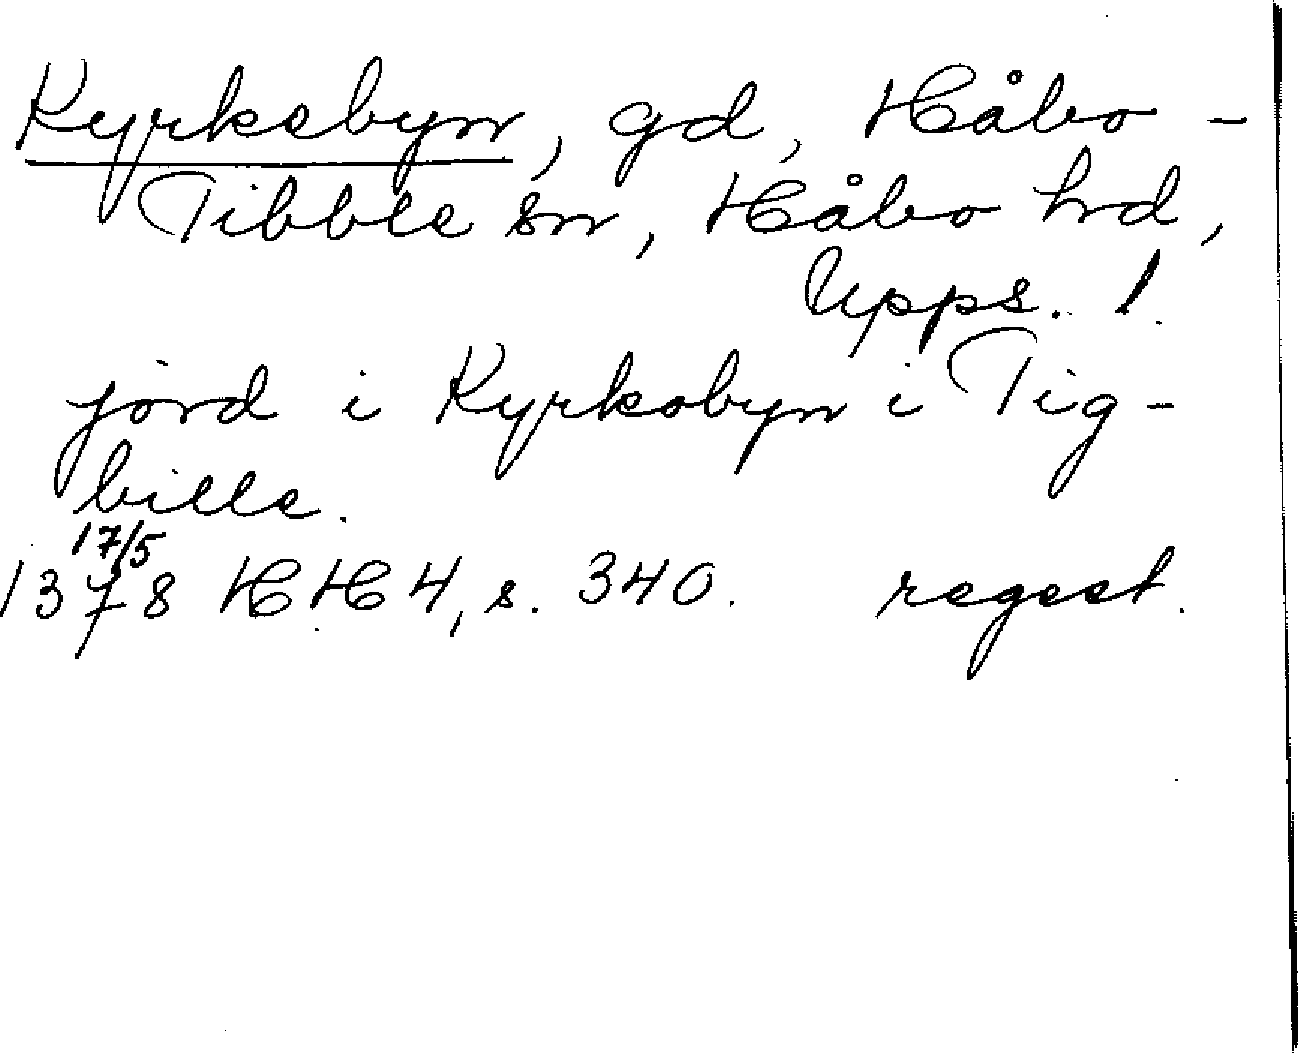 Kyrkebyn, gd, Håbo -
Tibble sn, Håbo hd,
Upps. l.
jord i Kyrkobyn i Tig-
bille.
17/5
1378 HH 4, s. 340. regest.